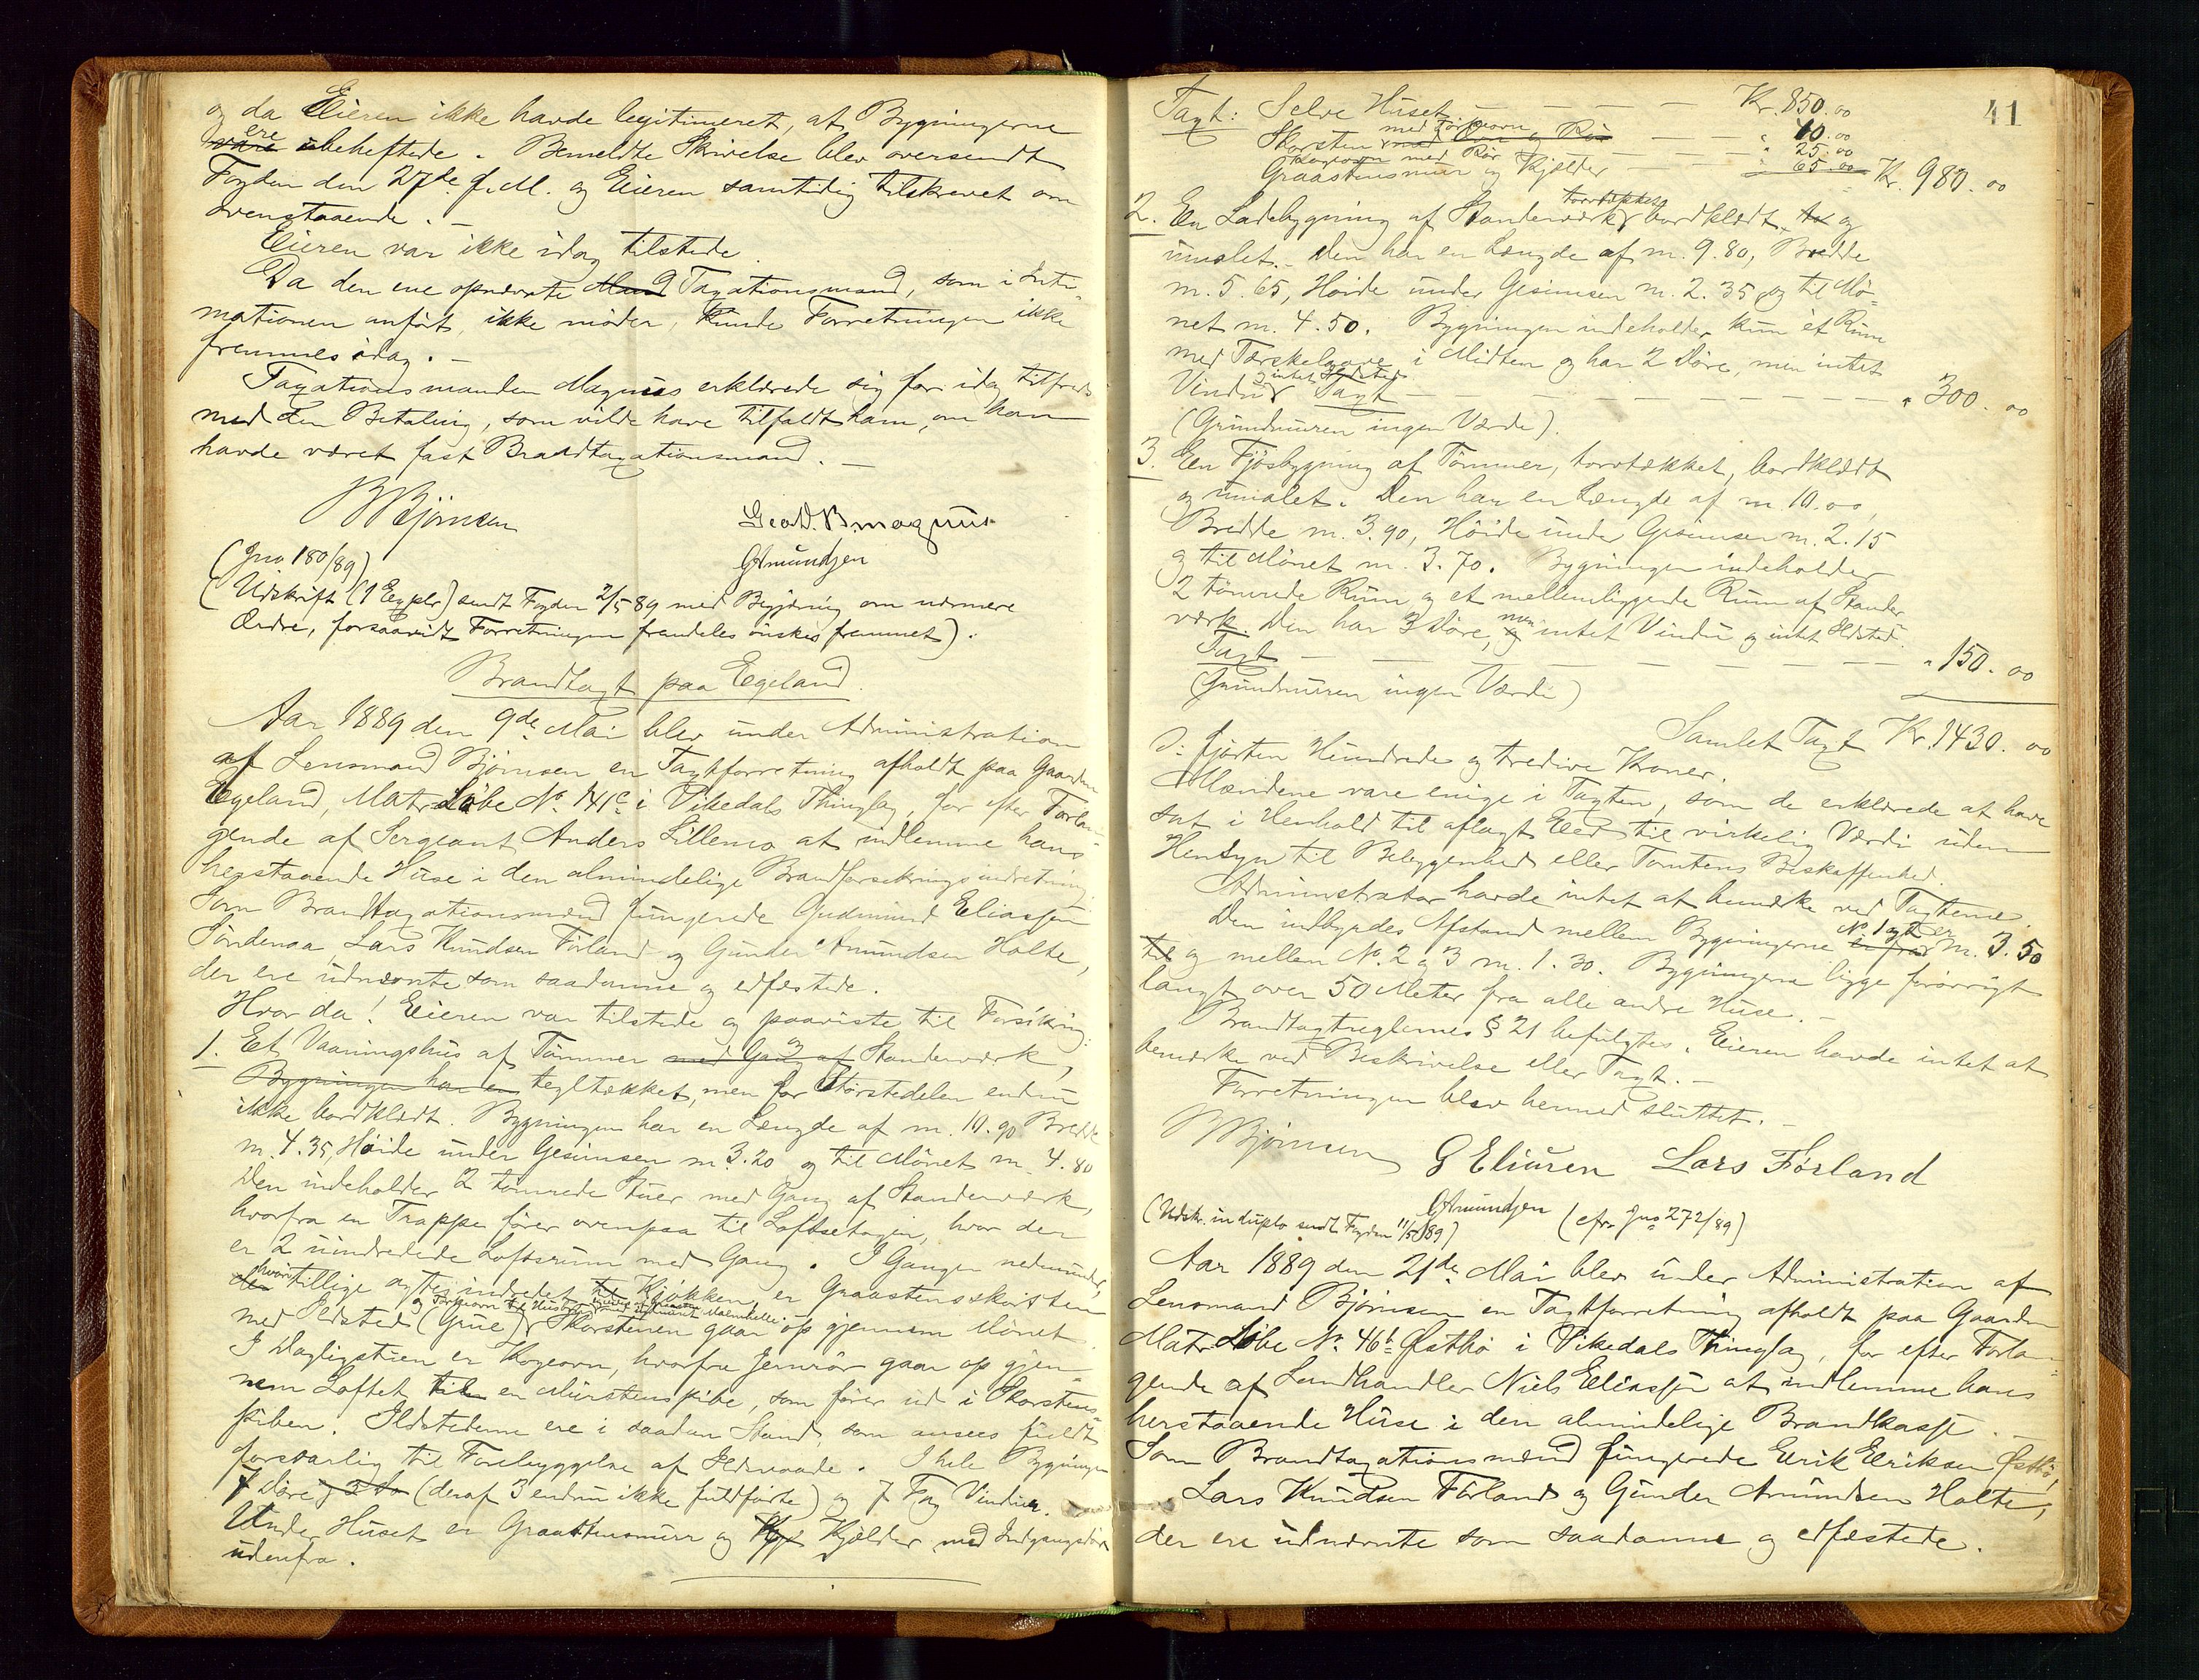 og da Eieren ikke havde legitimeret, at Bygningerne
ere ubeheftede. Bemeldte Skrivelse blev oversendt
Fogden den 27de f. M. og Eieren samtidig tilskrevet om
ovenstaaende. —
Eieren var ikke idag tilstede.
Da den ene opnævnte Mand Taxationsmand, som i Inti-
mationen anført, ikke møder, kunde Forretningen ikke
fremmes idag. —
Taxationsmanden Magnus erklærede sig for idag tilfreds
med den Betaling, som vilde have tilfaldt ham, om han
havde været fast Brandtaxationsmand. —
BBjørnsen
B. Magnus
GAmundsen
(Jno 180/89)
(Udskrift (1 Expl.) sendt Fogden 2/5 89 med Begjæring om nærmere
Ordre, forsaavidt Forretningen fremdeles ønskes fremmet).
Brandtaxt paa Egeland.
Aar 1889 den 9de Mai blev under Administration
af Lensmand Bjørnsen en Taxtforretning afholdt paa Gaarden
Egeland, Matr. Løbe No. 141c i Vikedals Thinglag, for efter Forlan-
gende af Sergeant Anders Lillemo at indlemme hans
herstaaende Huse i den almindelige Brandforsikringsindretning.
Som Brandtaxationsmænd fungerede Gudmund Eliassen
Søndenaa, Lars Knudsen Førland og Gunder Amundsen Holte,
der ere udnævnte som saadanne og edfæstede.
Hvor da! Eieren var tilstede og paaviste til Forsikring:
1. Et Vaaningshus af Tømmer med Gang af Standerværk,
Bygningen har en tegltækket, men for Størstedelen endnu
ikke bordklædt. Bygningen har en Længde af m. 10.90 Bredde
m. 4.35, Høide under Gesimsen m. 3.20 og til Mønet m. 4.80
Den indeholder 2 tømrede Stuer med Gang af Standerværk,
hvorfra en Trappe fører ovenpaa til Loftsetagen, hvor der
er 2 uindredede Loftsrum med Gang. I Gangen nedenunder,
hvor tillige agtes indredet Kjøkken, er Graastensskorsten
med Ildsted (Grue). Skorstenen gaar op gjennem Mønet
I Dagligstuen er Kogeovn, hvorfra Jernrør gaar op gjen-
nem Loftet til en Murstenspibe, som fører ud i Skorstens-
piben. Ildstederne ere i saadan Stand, som ansees fuldt
forsvarlig til Forebyggelse af Ildsvaade. I hele Bygningen
7 Døre (deraf 3 endnu ikke fuldførte) og 7 Fag Vinduer.
Under Huset er Graastensmur og Kjælder med Indgangsdør
udenfra.
41
Taxt: Selve Huset — — — — Kr. 850.00
Skorsten med — — " 40.00
Kogeovn med Rør — — " 25.00
Graastensmur og Kjælder — — " 65.00 Kr. 980.00
2. En Ladebygning af Standerværk, torvtækket, bordklædt og
umalet. Den har en Længde af m. 9.80, Bredde
m. 5.65, Høide under Gesimsen m. 2.35 og til Mø-
net m. 4.50. Bygningen indeholder kun et Rum
med Tærskelove i Midten og har 2 Døre, men intet
Vindu og intet Ildsted. Taxt — — — — " 300.00
(Grundmuren ingen Værdi).
3. En Fjøsbygning af Tømmer, torvtækket, bordklædt
og umalet. Den har en Længde af m. 10.00,
Bredde m. 3.90, Høide under Gesimsen m. 2.15
og til Mønet m. 3.70. Bygningen indeholder
2 tømrede Rum og et mellemliggende Rum af Stander-
værk. Den har 3 Døre, men intet Vindu og intet Ildsted.
Taxt — — — — " 150.00
(Grundmuren ingen Værdi)
Samlet Taxt Kr. 1430.00
ɔ: fjorten Hundrede og tredive Kroner.
Mændene vare enige i Taxten, som de erklærede at have
sat i Henhold til aflagt Eed til virkelig Værdi uden
Hensyn til Beliggenhed eller Tomtens Beskaffenhed.
Administrator havde intet at bemærke ved Taxterne.
Den indbyrdes Afstand mellem Bygningerne No. 1 og 2 er m. 3.50
og mellem No. 2 og 3 m. 1.30. Bygningerne ligge forøvrigt
langt over 50 Meter fra alle andre Huse. —
Brandtaxtreglernes § 21 befulgtes. Eieren havde intet at
bemærke ved Beskrivelse eller Taxt. —
Forretningen blev hermed sluttet. —
BBjørnsen G Eliasen Lars Førland
GAmundsen (cfr. Jno 272/89)
(Udskr. in duplo sendt Fogden 11/5 89)
Aar 1889 den 21de Mai blev under Administration af
Lensmand Bjørnsen en Taxtforretning afholdt paa Gaarden
Matr. Løbe No. 46b Østhø i Vikedals Thinglag, for efter Forlan-
gende af Landhandler Niels Eliassen at indlemme hans
herstaaende Huse i den almindelige Brandkasse. —
Som Brandtaxationsmænd fungerede Eerik Eeriksen Østhø,
Lars Knudsen Førland og Gunder Amundsen Holte,
der ere udnævnte som saadanne og edfæstede.